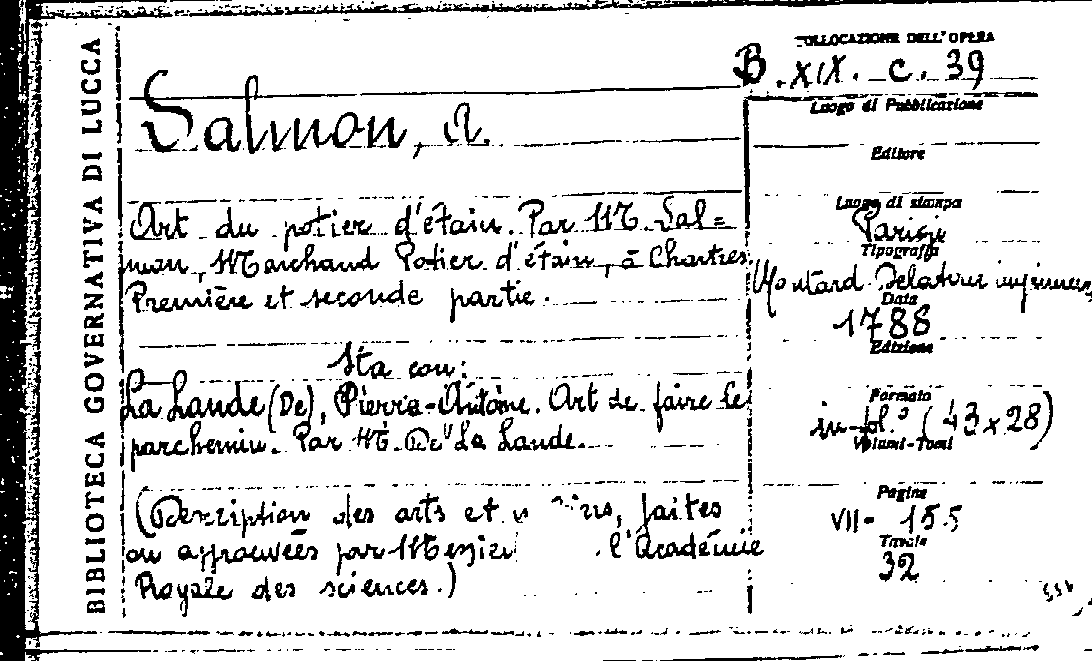 BIBLIOTECA GOVERNATIVA DI LUCCA
COLLOCAZIONE DELL'OPERA
B. XIX. c. 39
Salmon, A.
Art du potier d'étain. Par M. Sal=
mon, Marchand Potier d'étain, à Chartres.
Première et seconde partie.
Sta con:
La Lande (De), Pierre-Antoine. Art de faire le
parchemin. Par M. De La Lande.
(Description des arts et faites
ou approuvées par l'Académie
Royale des sciences.)
Luogo di Pubblicazione
Editore
Luogo di stampa
Parigi
Tipografia
Moutard Delatour
Data
1788
Edizione
Formato
in-fol.º (43x28)
Volumi-Tomi
Pagine
VII- 155
Tavole
32